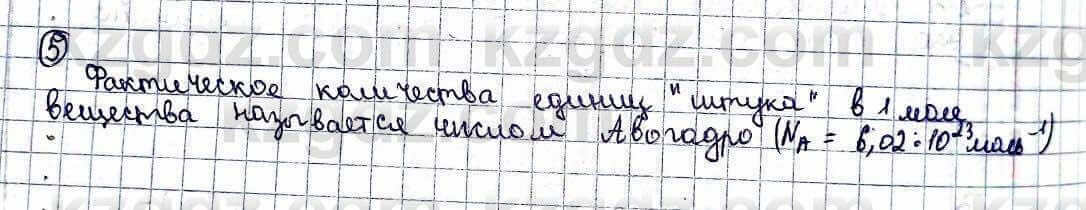 ⑤
Фактическое количества единиц "штука" в 1 моля
вещества называется числом Авогадро (N_A = 6,02·10²³ моль⁻¹)
kzgdz.com